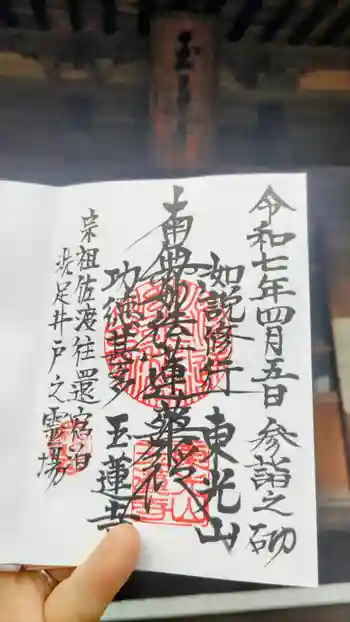 令和七年四月五日 参詣之砌
如説修行 東光山
南無妙法蓮華経
功徳甚多 玉蓮寺
宗祖佐渡往還宿泊
洗足井戸之霊場
玉蓮寺